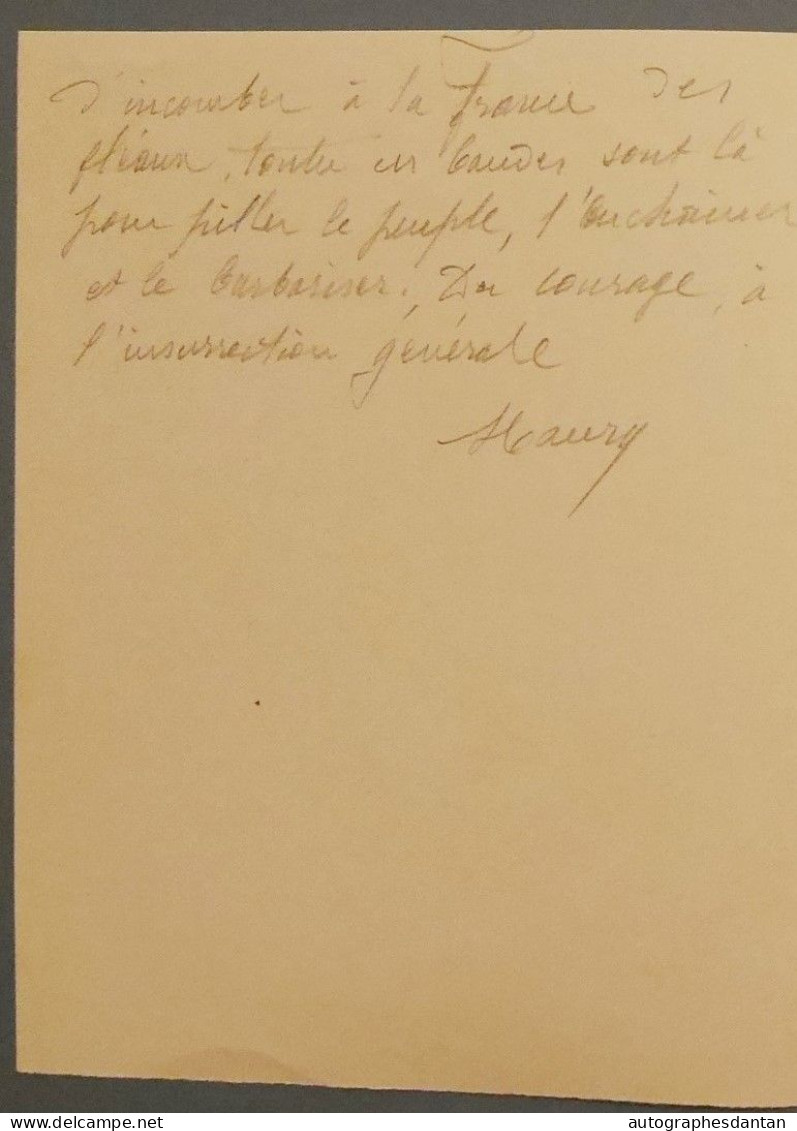 d'incomber à la france des
fléaux, toutes ces bandes sont là
pour piller le peuple, l'enchainer
et le barbariser. Du courage, à
l'insurrection générale
Maury
autographesdantan